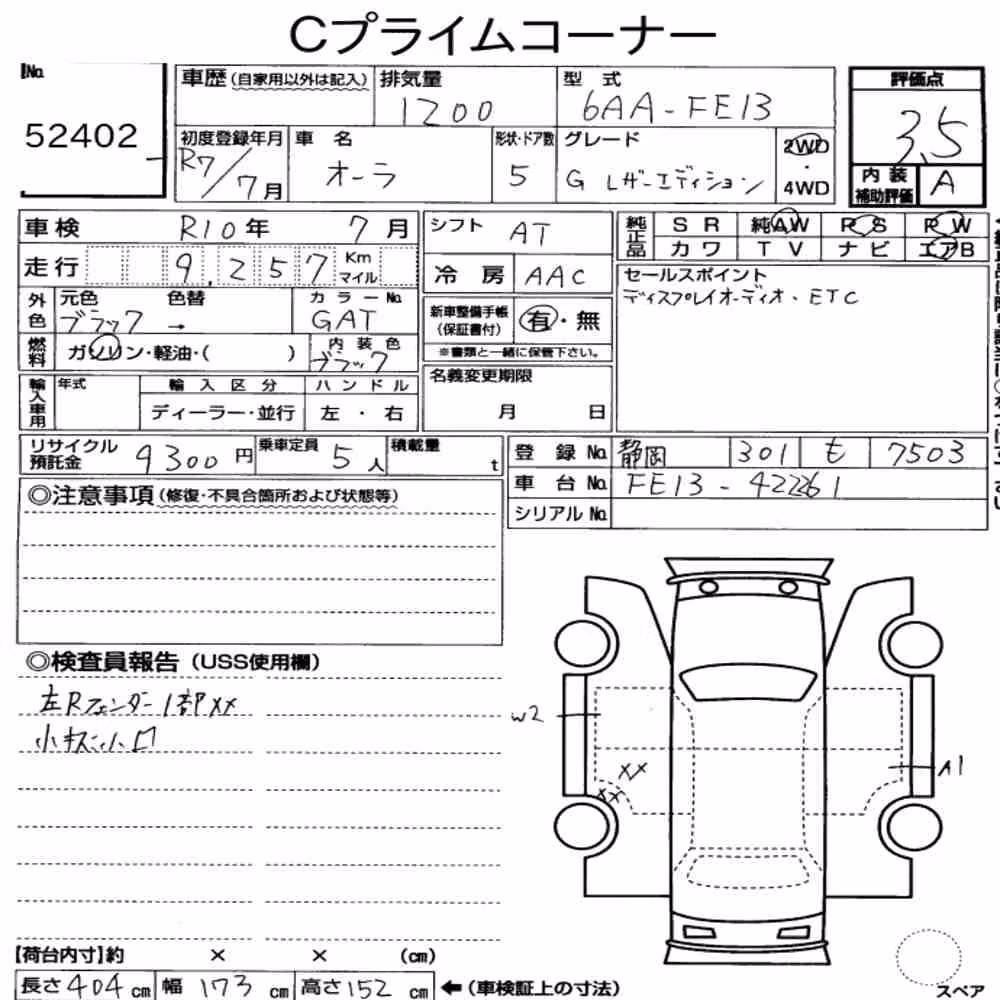 Cプライムコーナー
No.
52402
車歴(自家用以外は記入)
排気量
1200
型 式
6AA-FE13
評価点
3.5
初度登録年月
R7/7月
車 名
オーラ
形状・ドア数
5
グレード
G レザーエディション
2WD
・
4WD
内装
補助評価
A
車検
R10年 7月
シフト
AT
純正品
SR 純AW PS PW
カワ TV ナビ エアB
走行
9,257 Km
マイル
冷房
AAC
セールスポイント
ディスプレイオーディオ・ETC
外色
元色 色替
ブラック →
カラーNo.
GAT
新車整備手帳
(保証書付)
有・無
※書類と一緒に保管下さい。
燃料
ガソリン・軽油・( )
内装色
ブラック
名義変更期限
月 日
輸入車用
年式
輸入区分
ディーラー・並行
ハンドル
左・右
リサイクル
預託金
9300円
乗車定員
5人
積載量
t
登録No.
静岡 301 も 7503
車台No.
FE13-422261
シリアルNo.
◎注意事項(修復・不具合箇所および状態等)
◎検査員報告(USS使用欄)
左Rフェンダー1部XX
小キズ小凹
W2
XX
XX
A1
【荷台内寸】約 × × (cm)
長さ404cm 幅173cm 高さ152cm ←(車検証上の寸法)
スペア